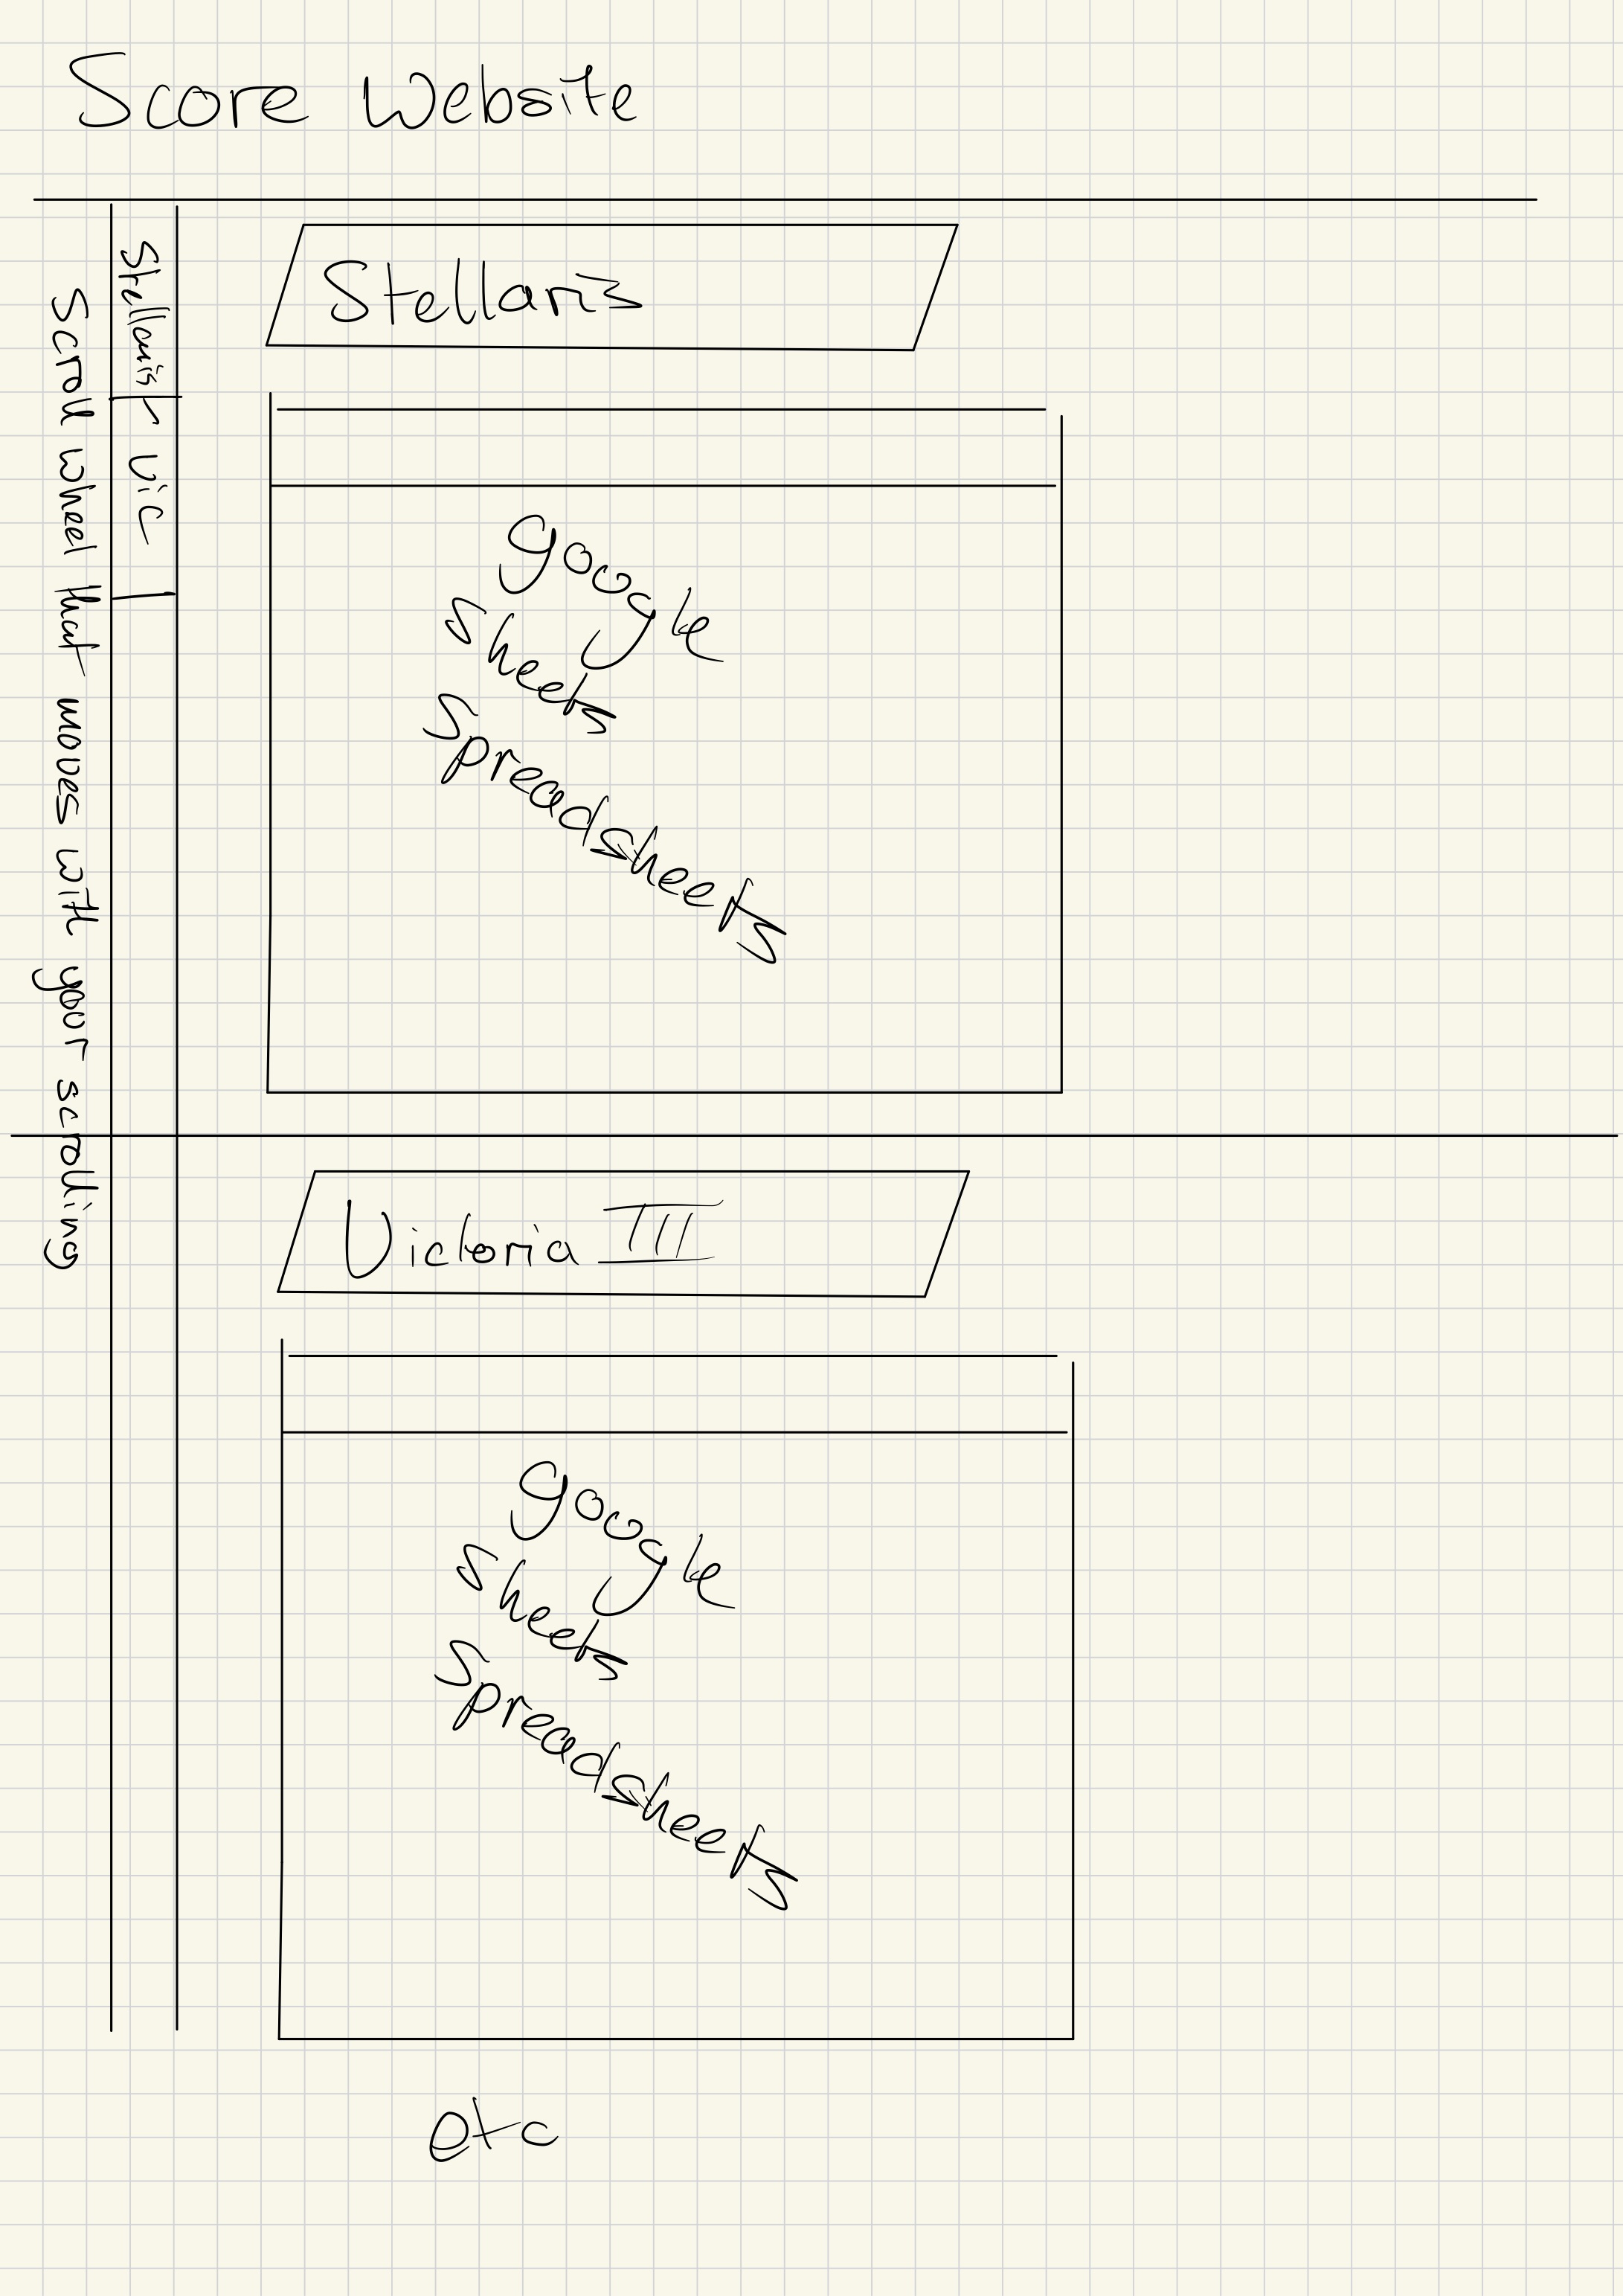 Score Website
Stellaris
Vic
Scroll wheel that moves with your scrolling
Stellaris
google
sheets
spreadsheets
Victoria III
google
sheets
spreadsheets
etc